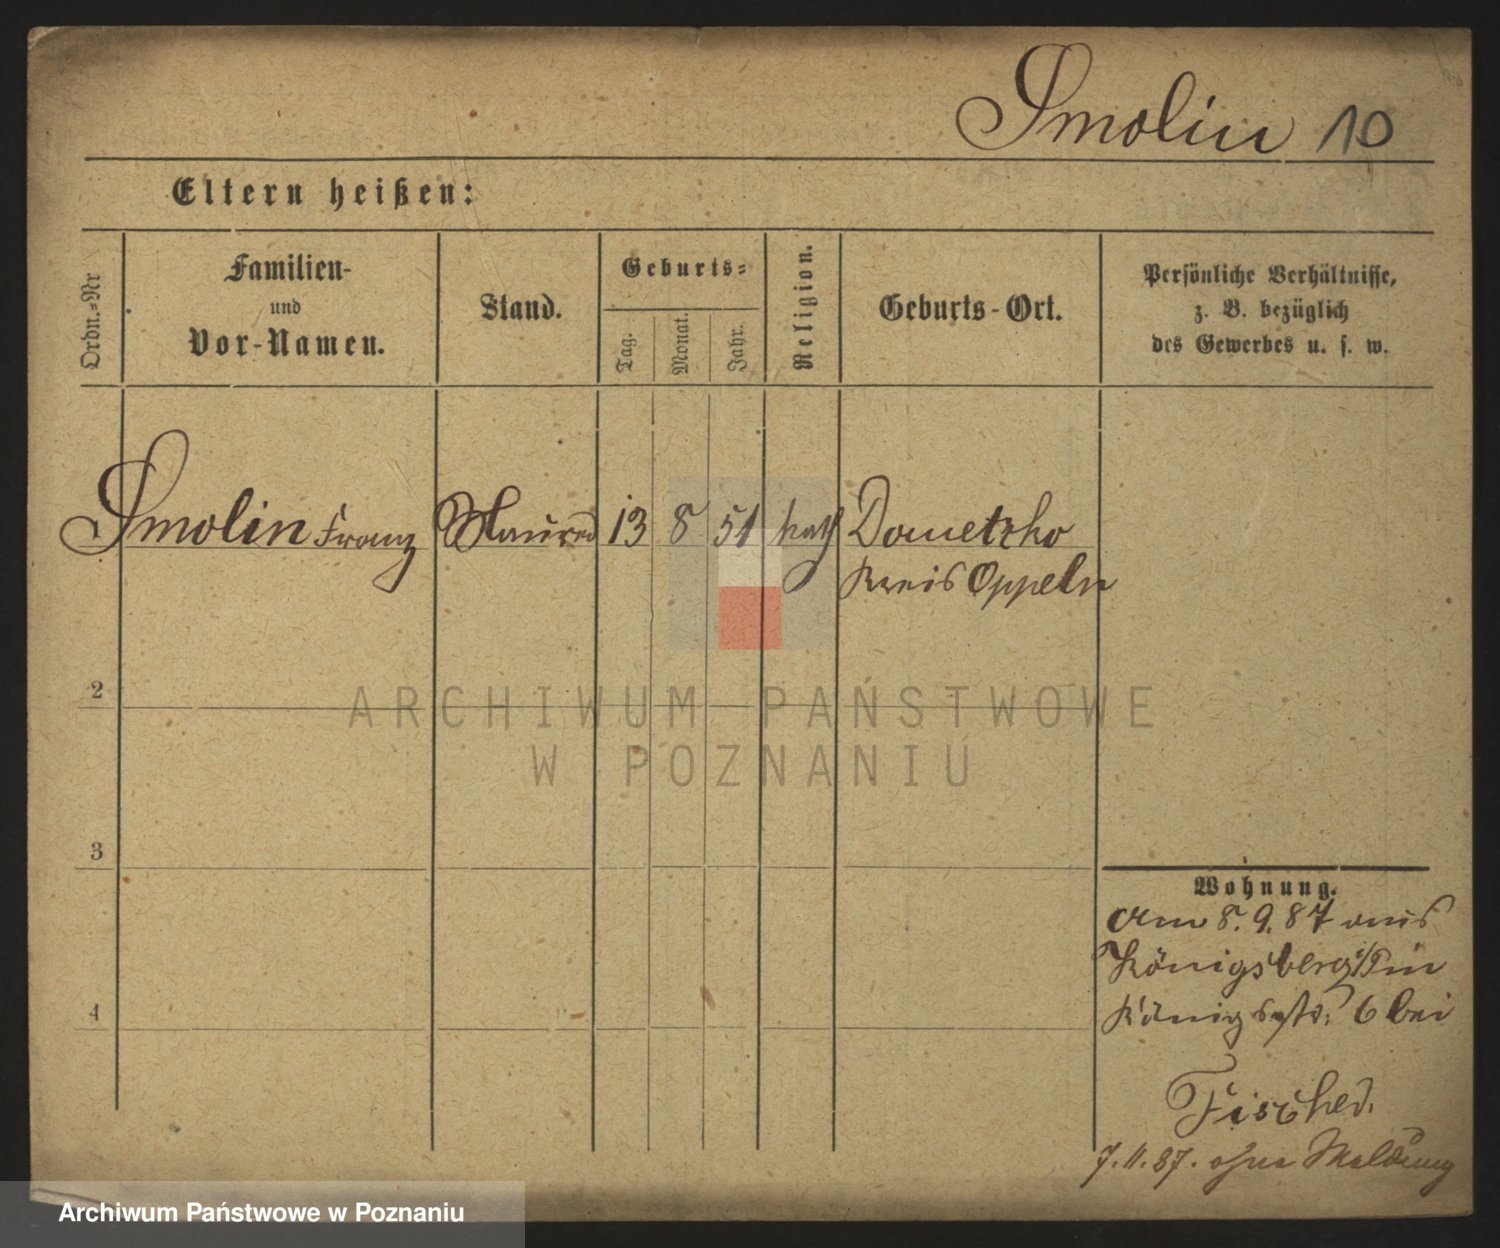 Smolin 10
Eltern heißen:
Ordn.-Nr
Familien-
und
Vor-Namen.
Stand.
Geburts-
Tag.
Monat.
Jahr.
Religion.
Geburts-Ort.
Persönliche Verhältnisse,
z. B. bezüglich
des Gewerbes u. s. w.
Smolin Franz Maurer 13 8 51 kath Dometzko
Kreis Oppeln
2
ARCHIWUM PAŃSTWOWE
W POZNANIU
3
Wohnung.
Am 8. 9. 87 aus
Königsberg i/P in
Königsstr: 6 bei
4
Fischer.
7. 11. 87. ohne Meldung
Archiwum Państwowe w Poznaniu